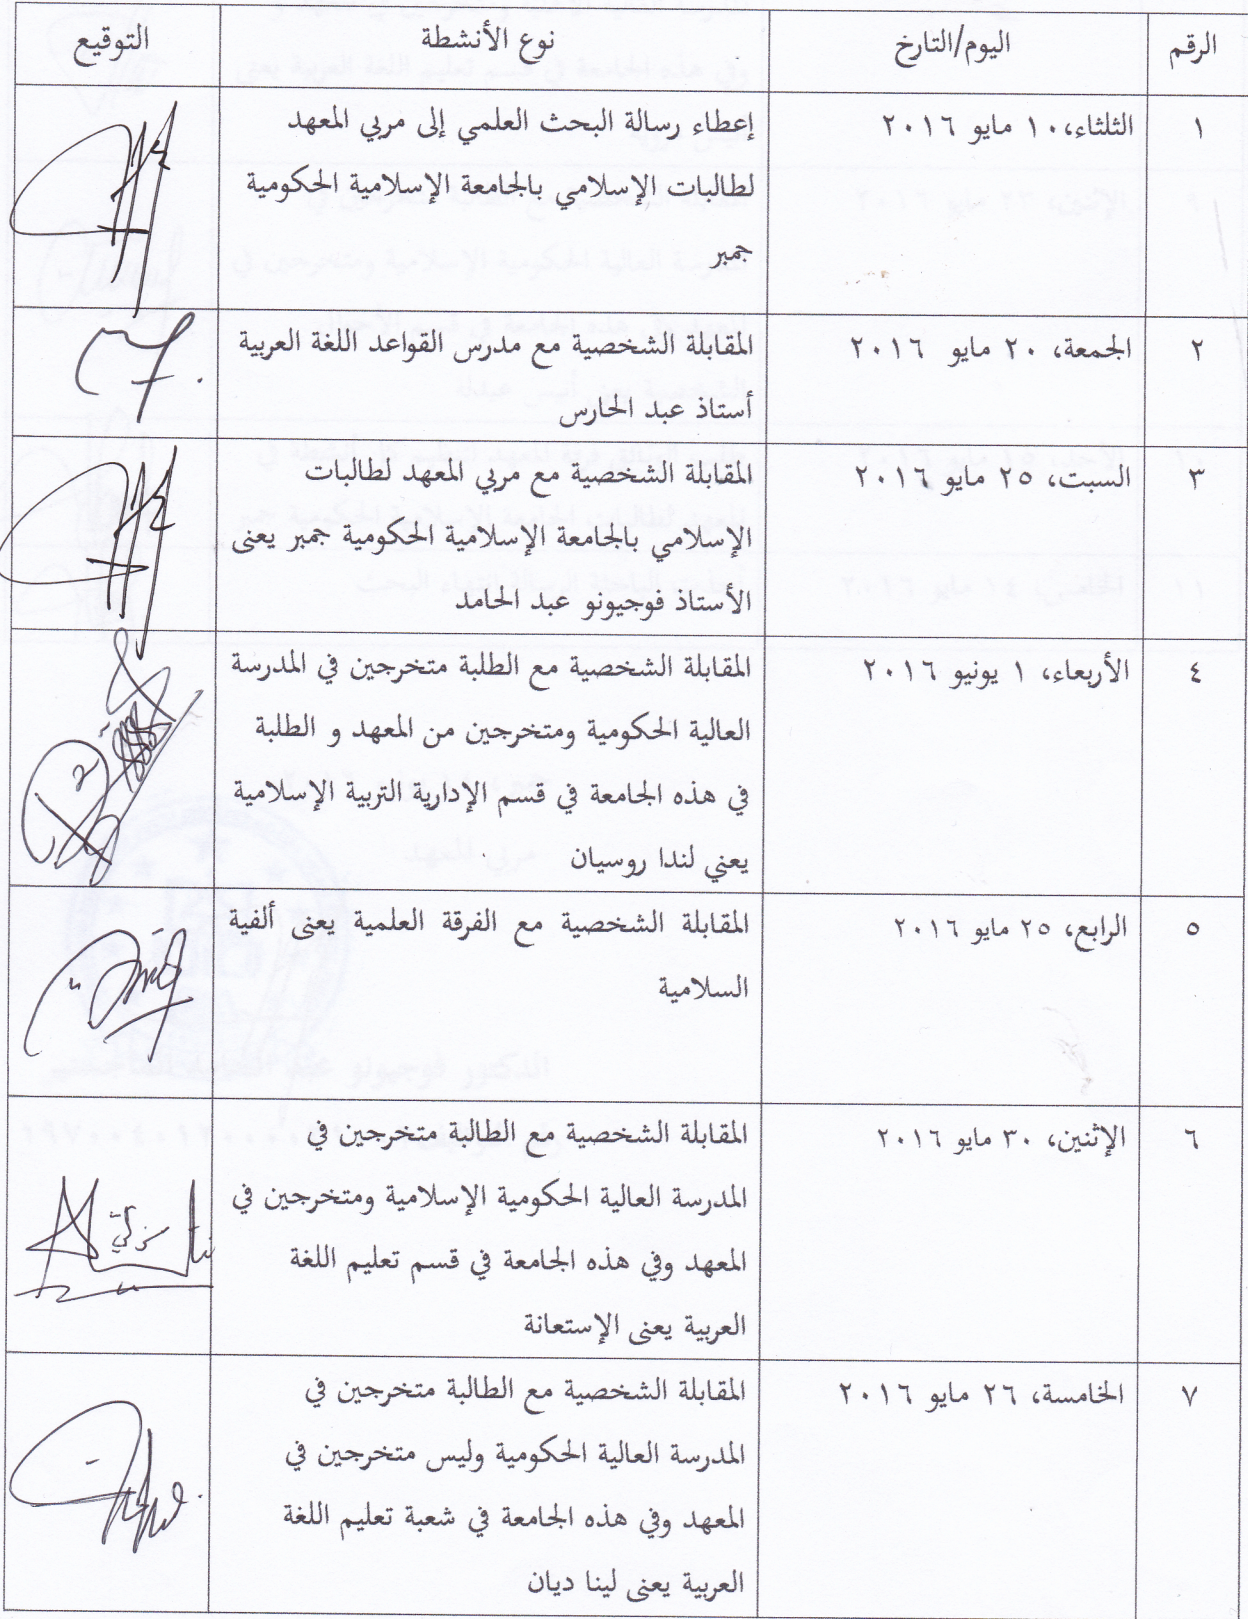 الرقم اليوم/التارخ نوع الأنشطة التوقيع
١ الثلثاء،١٠ مايو ٢٠١٦ إعطاء رسالة البحث العلمي إلى مربي المعهد
لطالبات الإسلامي بالجامعة الإسلامية الحكومية
جمبر
٢ الجمعة، ٢٠ مايو ٢٠١٦ المقابلة الشخصية مع مدرس القواعد اللغة العربية
أستاذ عبد الحارس
٣ السبت، ٢٥ مايو ٢٠١٦ المقابلة الشخصية مع مربي المعهد لطالبات
الإسلامي بالجامعة الإسلامية الحكومية جمبر يعنى
الأستاذ فوجيونو عبد الحامد
٤ الأربعاء، ١ يونيو ٢٠١٦ المقابلة الشخصية مع الطلبة متخرجين في المدرسة
العالية الحكومية ومتخرجين من المعهد و الطلبة
في هذه الجامعة في قسم الإدارية التربية الإسلامية
يعني لندا روسيان
٥ الرابع، ٢٥ مايو ٢٠١٦ المقابلة الشخصية مع الفرقة العلمية يعنى ألفية
السلامية
٦ الإثنين، ٣٠ مايو ٢٠١٦ المقابلة الشخصية مع الطالبة متخرجين في
المدرسة العالية الحكومية الإسلامية ومتخرجين في
المعهد وفي هذه الجامعة في قسم تعليم اللغة
العربية يعنى الإستعانة
٧ الخامسة، ٢٦ مايو ٢٠١٦ المقابلة الشخصية مع الطالبة متخرجين في
المدرسة العالية الحكومية وليس متخرجين في
المعهد وفي هذه الجامعة في شعبة تعليم اللغة
العربية يعنى لينا ديان